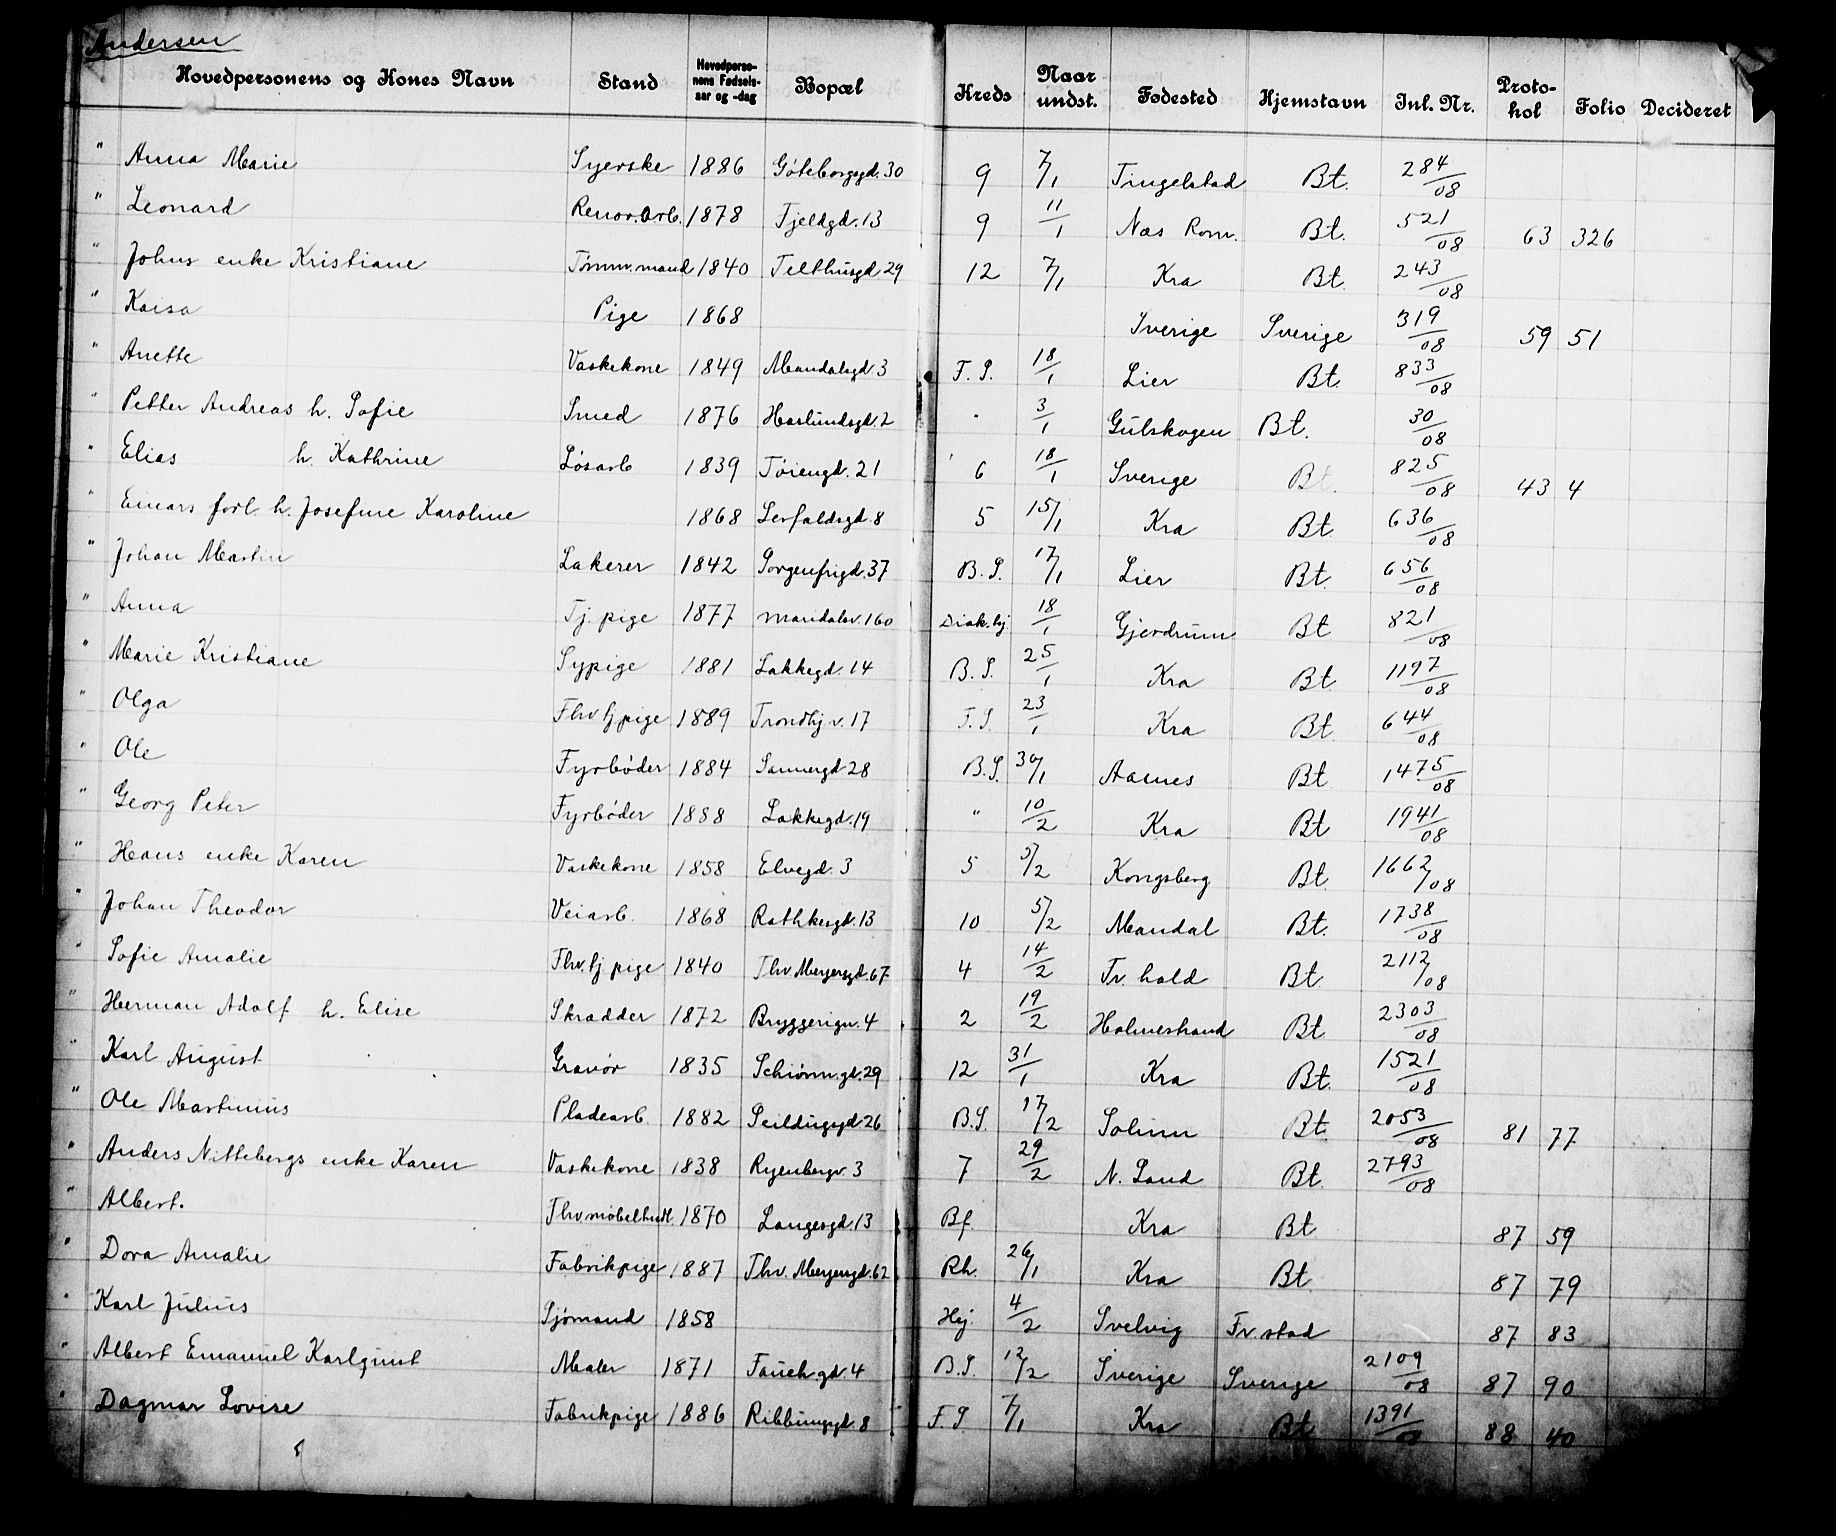 Andersen
Hovedpersonens og Kones Navn Stand Hovedperso-nens Fødsels-aar og -dag Bopæl Kreds Naar undst. Fødested Hjemstavn Inl. Nr. Proto-kol Folio Decideret
" Anna Marie Syerske 1886 Göteborggd. 30 9 7/1 Tingelstad Bt. 284/08
" Leonard Renov.arb. 1878 Fjeldgd. 13 9 11/1 Næs Rom. Bt. 521/08 63 326
" Johns enke Kristiane Tömm.mand 1840 Telthusgd 29 12 7/1 Kra Bt. 243/08
" Kaisa Pige 1868 Sverige Sverige 319/08 59 51
" Anette Vaskekone 1849 Mandalsgd. 3 F. S. 18/1 Lier Bt. 833/08
" Petter Andreas h. Sofie Smed 1876 Haslundsgd. 2 " 3/1 Gulskogen Bt. 30/08
" Elias h. Kathrine Løsarb 1839 Tøiengd. 21 6 18/1 Sverige Bt. 825/08 43 4
" Einars forl. h. Josefine Karoline 1868 Lerfaldsgd. 8 5 15/1 Kra Bt. 636/08
" Johan Martin Lakerer 1842 Sorgenfrigd. 37 B. S. 17/1 Lier Bt. 656/08
" Anna Tj. pige 1877 Maridalsv. 160 Diak.hj 18/1 Gjerdrum Bt 821/08
" Marie Kristiane Sypige 1881 Lakkegd. 14 B. S. 25/1 Kra Bt 1197/08
" Olga Fhv tj pige 1889 Trondhj v. 17 F. S. 23/1 Kra Bt. 644/08
" Ole Fyrbøder 1884 Sannergd 28 B. S. 30/1 Aarnes Bt 1475/08
" Georg Peter Fyrbøder 1888 Lakkegd. 19 " 10/2 Kra Bt 1941/08
" Hans enke Karen Vaskekone 1858 Elvegd. 3 5 5/2 Kongsberg Bt. 1662/08
" Johan Theodor Veiarb. 1868 Rathkesgd. 13 10 5/2 Mandal Bt. 1738/08
" Sofie Amalie Fhv. tj. pige 1840 Thv. Meyersgd. 67 4 14/2 Fr. hald Bt. 2112/08
" Herman Adolf h. Elise Skrædder 1872 Bryggerign. 4 2 19/2 Holmestrand Bt 2303/08
" Karl August Gravør 1835 Schiønn.gd. 29 12 31/1 Kra Bt. 1521/08
" Ole Martinius Pladearb. 1882 Seildugsgd. 26 B.S. 17/2 Solum Bt. 2053/08 81 77
" Anders Nittebergs enke Karen Vaskekone 1838 Ryenbergv. 3 7 29/2 N. Land Bt. 2793/08
" Albert. Fhv. møbelhndl. 1870 Langesgd. 13 Bf. Kra Bt 87 59
" Dora Amalie Fabrikpige 1887 Thv. Meyersgd. 62 Rh. 26/1 Kra Bt. 87 79
" Karl Julius Sjømand 1858 Hej. 4/2 Svelvig Fr. stad 87 83
" Albert Emanuel Karlquist Maler 1871 Fauch.gd. 4 B.S. 12/2 Sverige Sverige 2109/08 87 90
" Dagmar Lovise Fabrikpige 1886 Ribbungsgd. 8 F. S 7/1 Kra Bt 1391/08 88 40